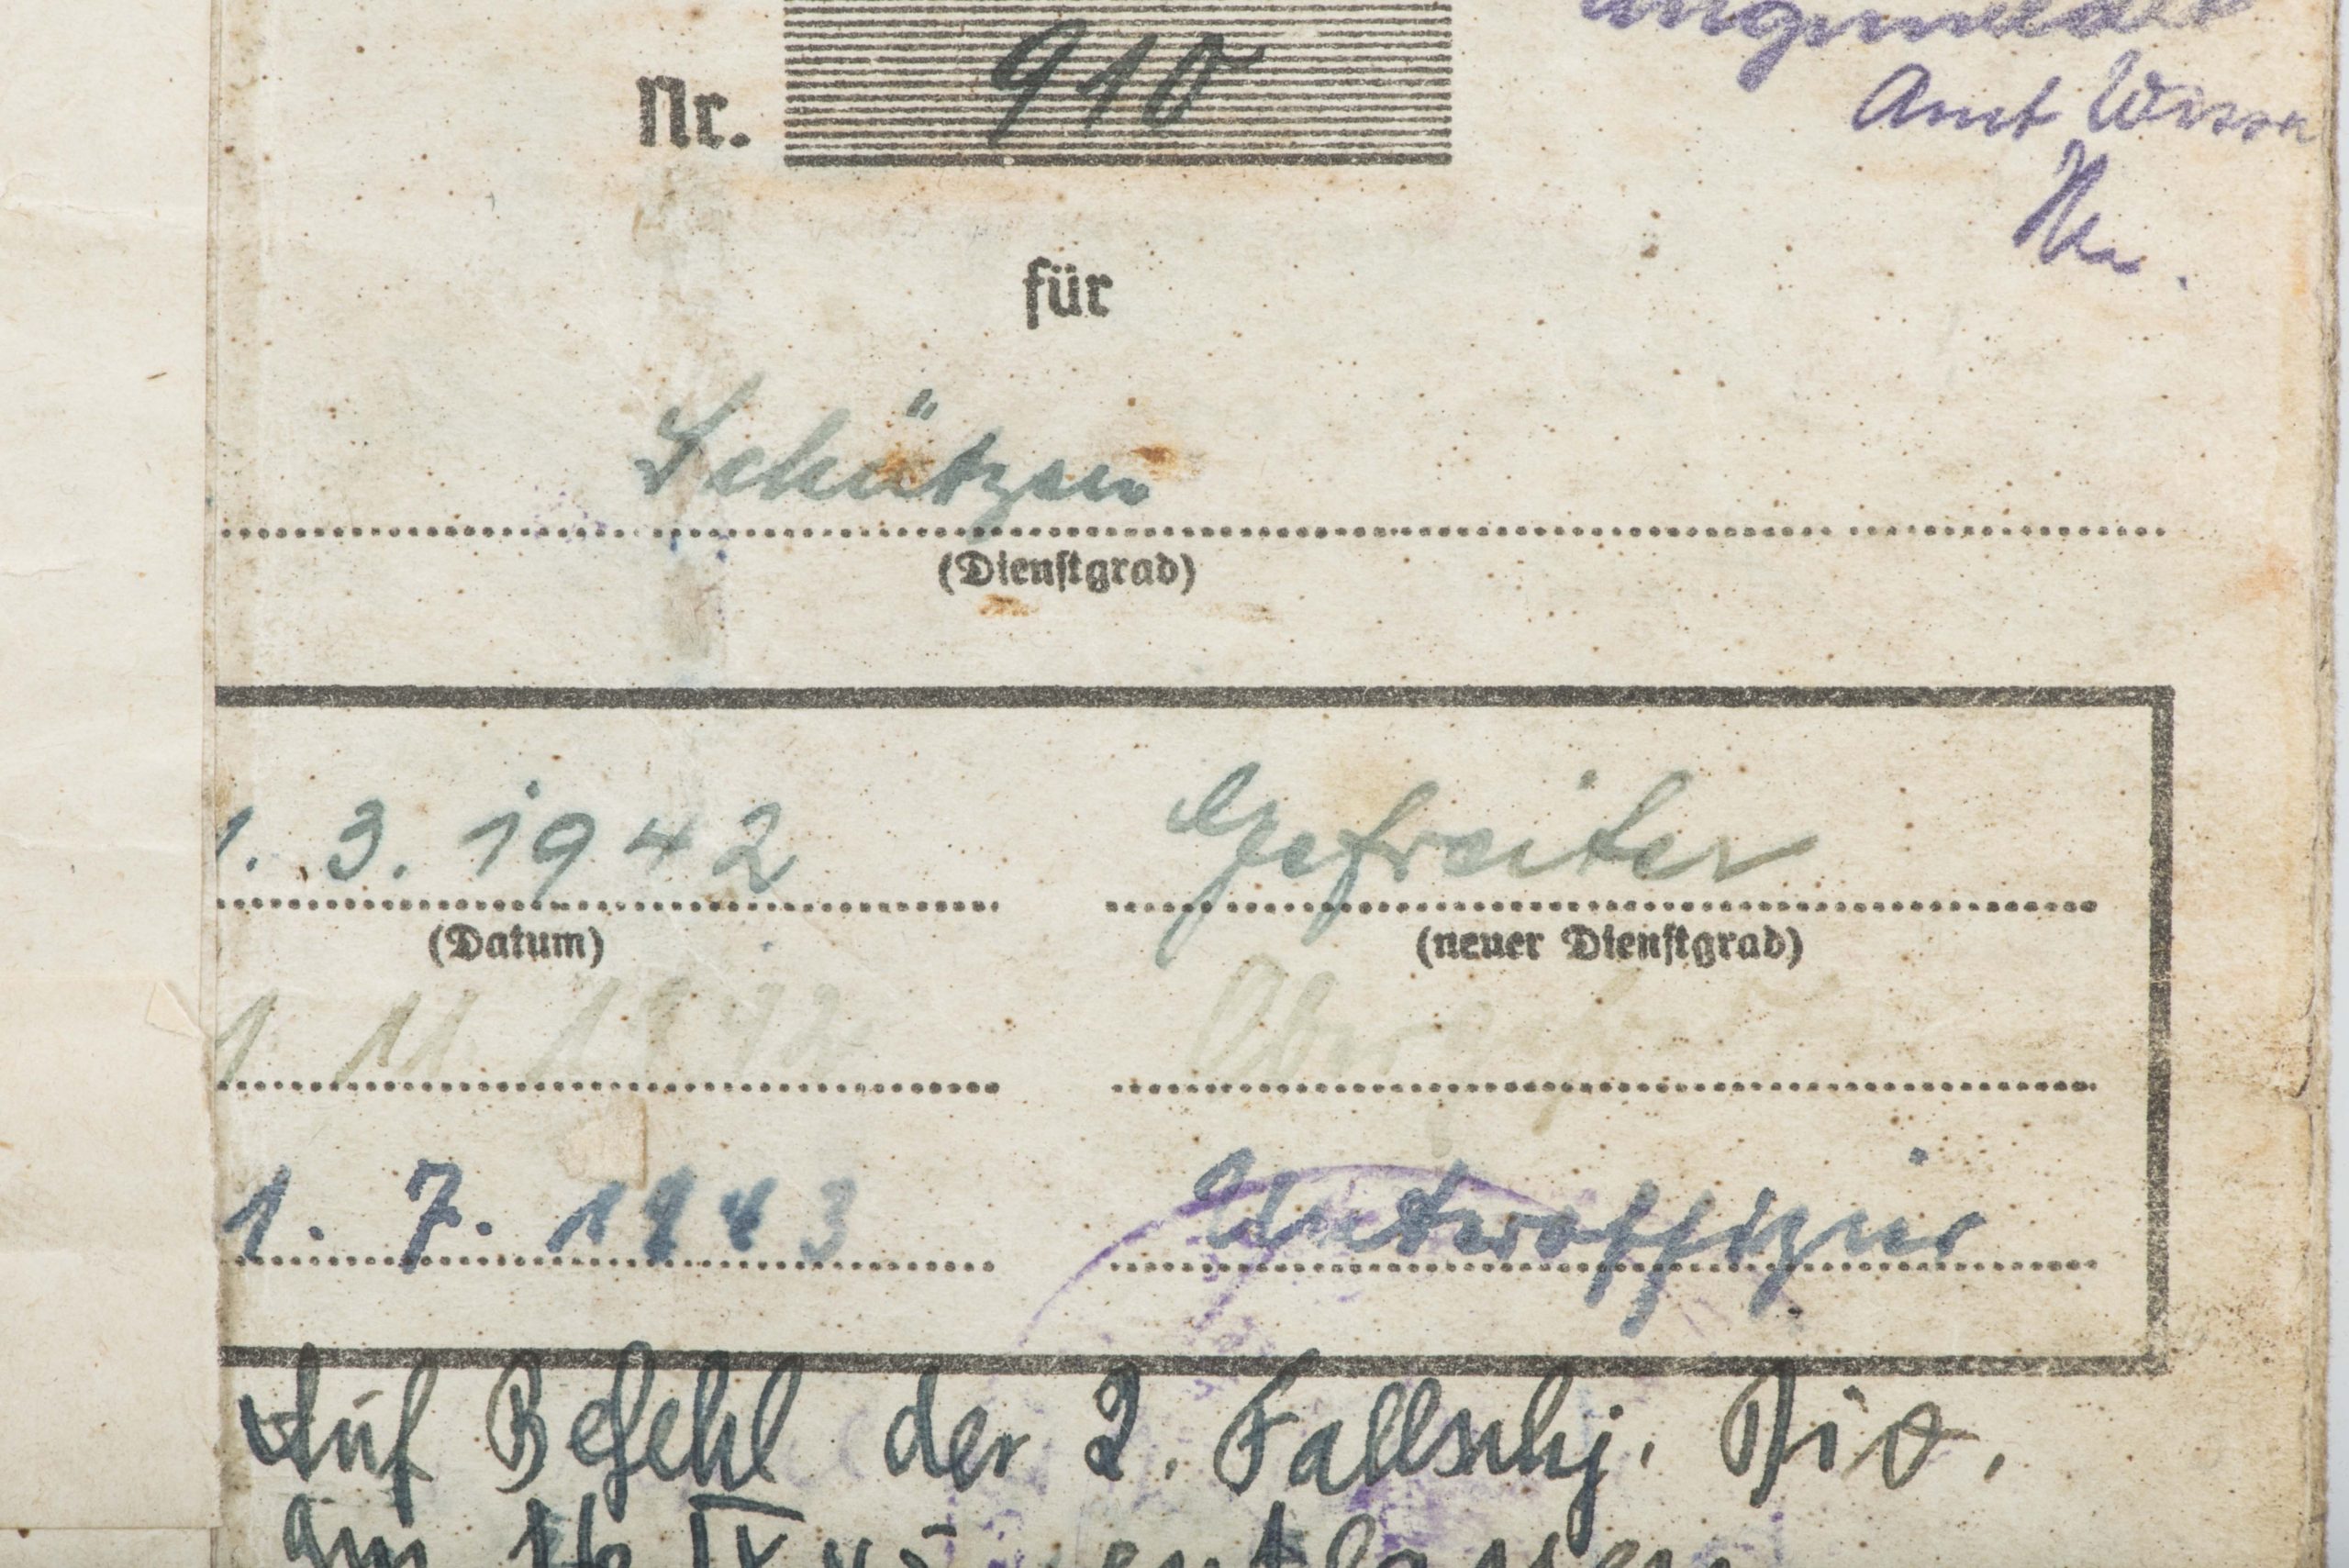 angemeldet
Nr. 910
Amt Wissen
für
Schützen
(Dienstgrad)
1. 3. 1942 Gefreiter
(Datum) (neuer Dienstgrad)
1 11 1942 Obergefreiter
1. 7. 1943 Unteroffizier
Auf Befehl der 2. Fallschj. Div.
am 16 IV 45 entlassen